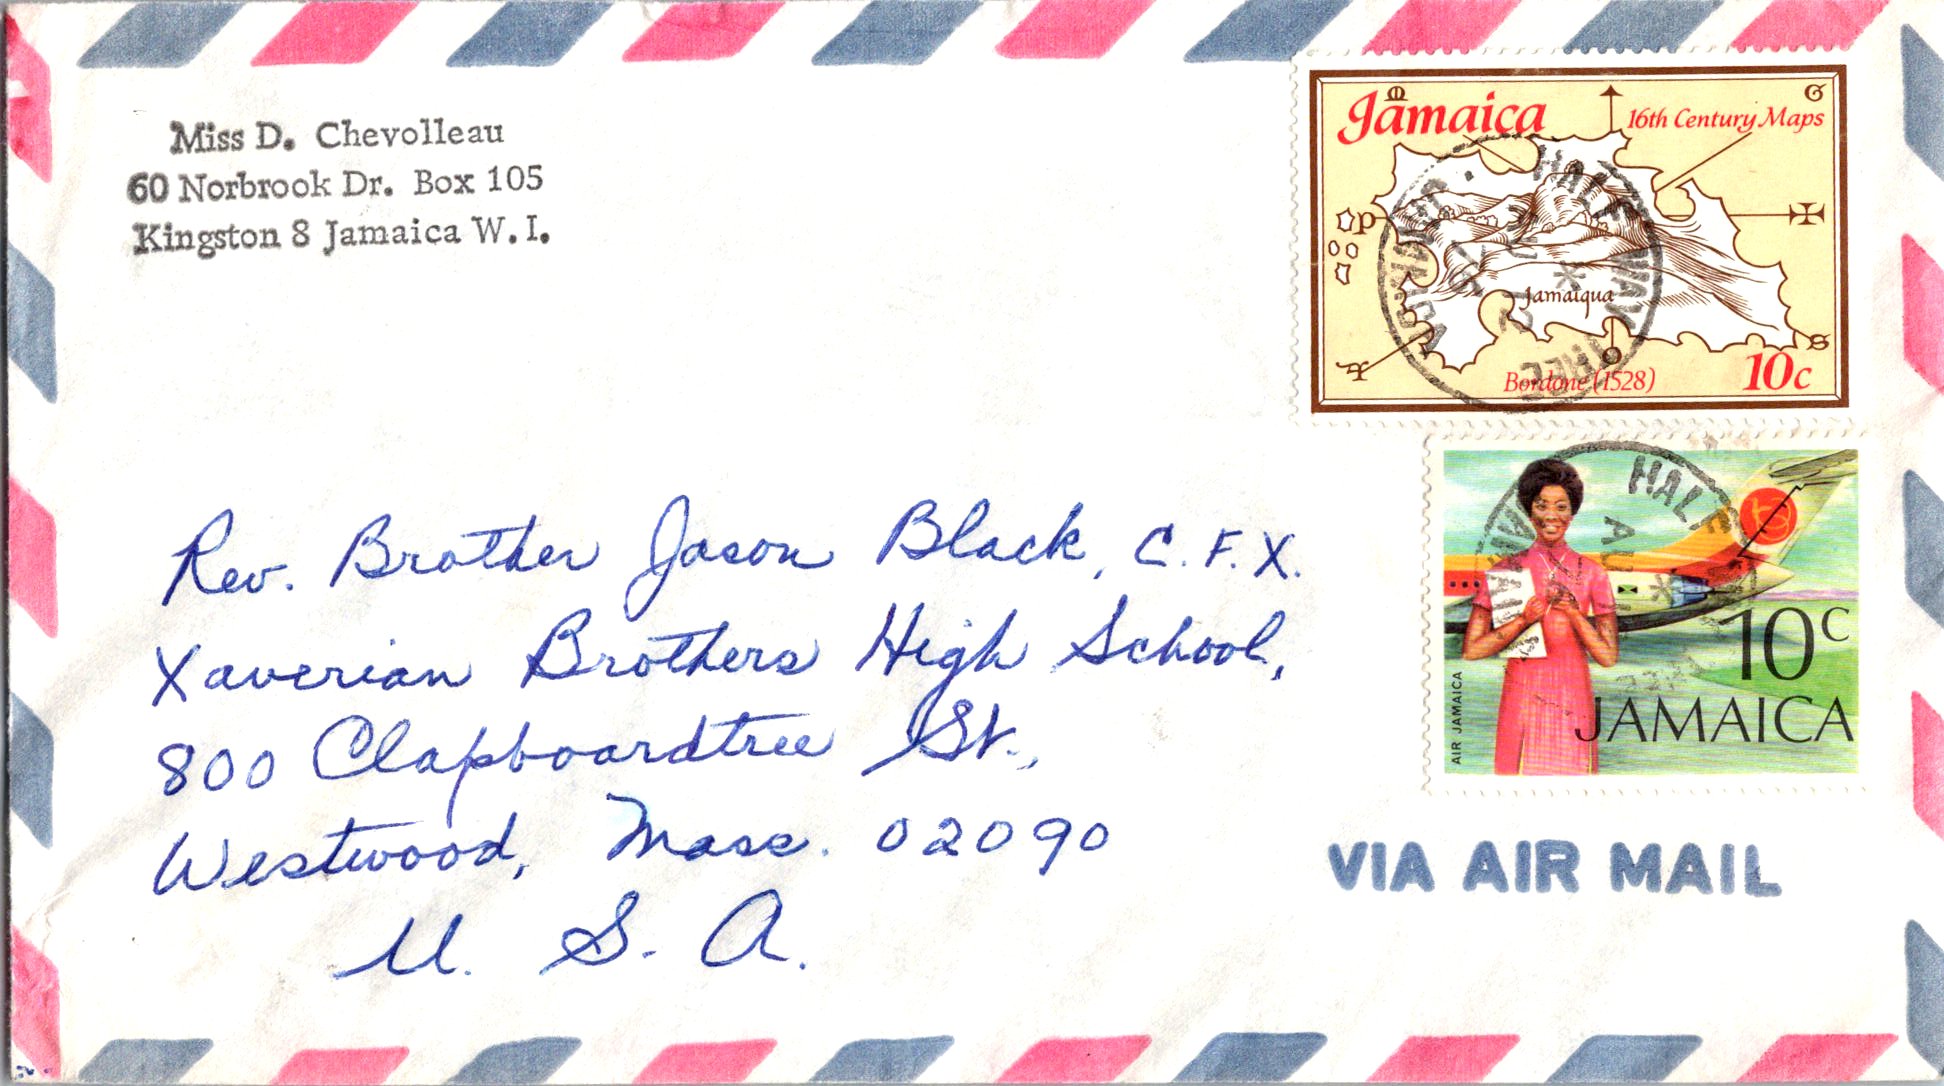 Miss D. Chevolleau
60 Norbrook Dr. Box 105
Kingston 8 Jamaica W. I.
Jamaica
16th Century Maps
M
G
P
Jamaiqua
S
O
Bordone (1528)
10c
HALF WAY TREE
JAMAICA
HALF
AU
JAMAICA
10c
JAMAICA
AIR JAMAICA
Rev. Brother Jason Black, C. F. X.
Xaverian Brothers High School,
800 Clapboardtree St.,
Westwood, Mass. 02090
U. S. A.
VIA AIR MAIL